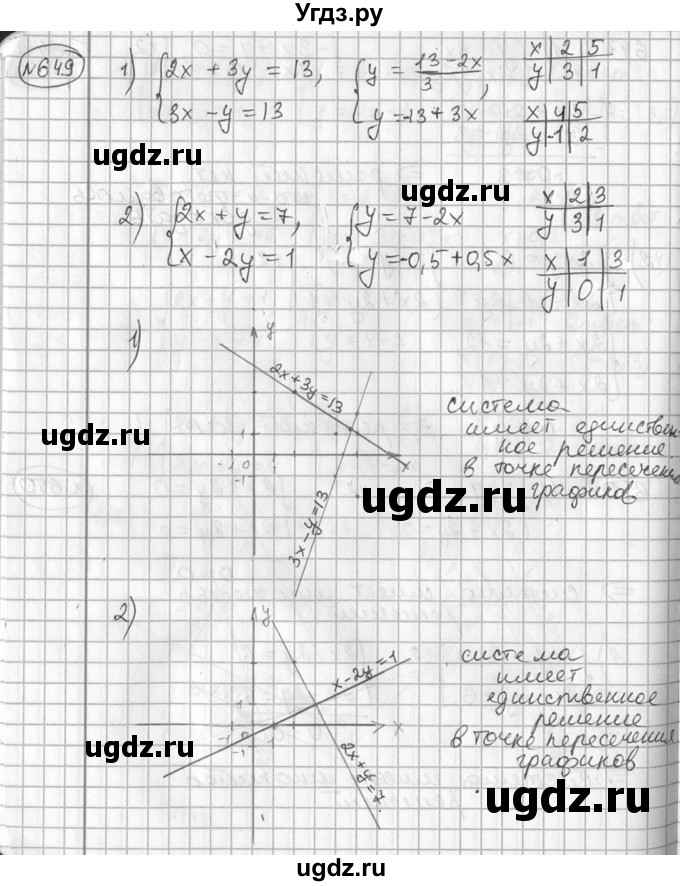 Угдз.ру
№649
1) {2x + 3y = 13, {y = (13-2x)/3, x | 2 | 5
y | 3 | 1
{3x - y = 13 {y = -13 + 3x x | 4 | 5
y | -1 | 2
ugdz.ru
ugdz.ru
2) {2x + y = 7, {y = 7 - 2x x | 2 | 3
y | 3 | 1
{x - 2y = 1 {y = -0,5 + 0,5x x | 1 | 3
y | 0 | 1
1)
y
2x + 3y = 13
система
имеет единствен-
ное решение
в точке пересечения
графиков
ugdz.ru
ugdz.ru
1
-1 0 1 x
-1
3x - y = 13
2)
y
x - 2y = 1
система
имеет
единственное
решение
в точке пересечения
графиков
1
-1 0 1 x
-1
2x + y = 7
ugdz.ru
ugdz.ru
ugdz.ru